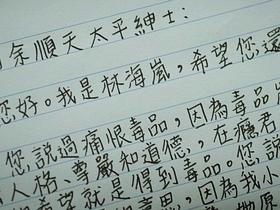 余順天太平紳士：
您好。我是林海嵐，希望您還
您說過痛恨毒品，因為毒品
人格、尊嚴和道德，在癮君
希望就是得到毒品。您說
意思，因為我小